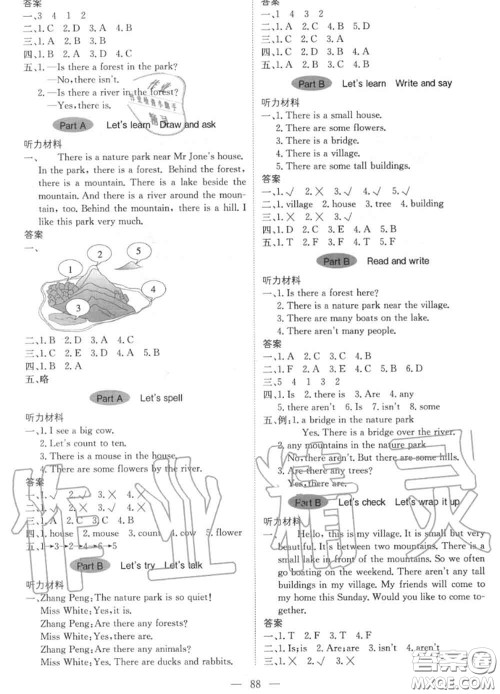 答案
一、3　4　1　2
二、1. C　2. D　3. A　4. B
三、1. B　2. A　3. C　4. D
四、1. B　2. D　3. A　4. C
五、1. —Is there a forest in the park?
—No, there isn't.
2. —Is there a river in the forest?
—Yes, there is.
Part A　Let's learn　Draw and ask
听力材料
一、　There is a nature park near Mr Jone's house.
In the park, there is a forest. Behind the forest,
there is a mountain. There is a lake beside the
mountain. And there is a river around the moun-
tain, too. Behind the mountain, there is a hill. I
like this park very much.
答案
一、
1
2
3
4
5
二、1. B　2. D　3. A　4. C
三、1. C　2. E　3. D　4. A　5. B
四、1. B　2. A
五、略
Part A　Let's spell
听力材料
一、1. I see a big cow.
2. Let's count to ten.
3. There is a mouse in the house.
4. There are some flowers by the river.
答案
一、1. √　2. √　3. ×　4. ×
二、1. D　2. C　3. C　4. B
四、1. house　2. mouse　3. count　4. cow　5. flower
五、1→3→2→4→6→5
Part B　Let's try　Let's talk
听力材料
一、Zhang Peng: The nature park is so quiet!
Miss White: Yes, it is.
Zhang Peng: Are there any forests?
Miss White: Yes, there are.
Zhang Peng: Are there any animals?
Miss White: Yes. There are ducks and rabbits.
一、1　4　3　2
二、1. C　2. A　3. B　4. C　5. B
四、1. A　2. C　3. B
Part B　Let's learn　Write and say
听力材料
一、1. There is a small house.
2. There are some flowers.
3. There is a bridge.
4. There is a village.
5. There are some tall buildings.
答案
一、1. √　2. ×　3. √　4. ×　5. √
二、1. village　2. house　3. tree　4. building
三、1. D　2. C　3. E　4. A　5. B
五、1. T　2. F　3. F　4. T　5. F
Part B　Read and write
听力材料
一、1. Is there a forest here?
2. There is a nature park near the village.
3. There are many boats on the lake.
4. There aren't many people.
答案
一、1. A　2. C　3. B　4. B
二、1. F　2. A　3. D　4. E　5. C
三、5　4　1　3　2
四、1. are　2. to　3. is　4. Are　any
5. there　aren't　6. Is　there　isn't
五、例：1. a bridge in the nature park
Yes. There is a bridge over the river.
2. any mountains in the nature park
No, there aren't. But there are some hills.
3. Are there any trees?
Yes, there are.
Part B　Let's check　Let's wrap it up
听力材料
一、　Hello, this is my village. It is small but very
beautiful. It's between two mountains. There is a
small lake in front of the mountains. So we often
go boating on the weekend. There aren't any tall
buildings in my village. My friends will come to
my home this Sunday. Would you like to come to-
gether?
一、1. T　2. F　3. F　4. F
三、1. Is　2. Are　3. are　4. isn't　5. aren't
88